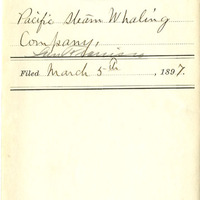 Pacific Steam Whaling
Company,
San Francisco
Filed March 5th, 1897.